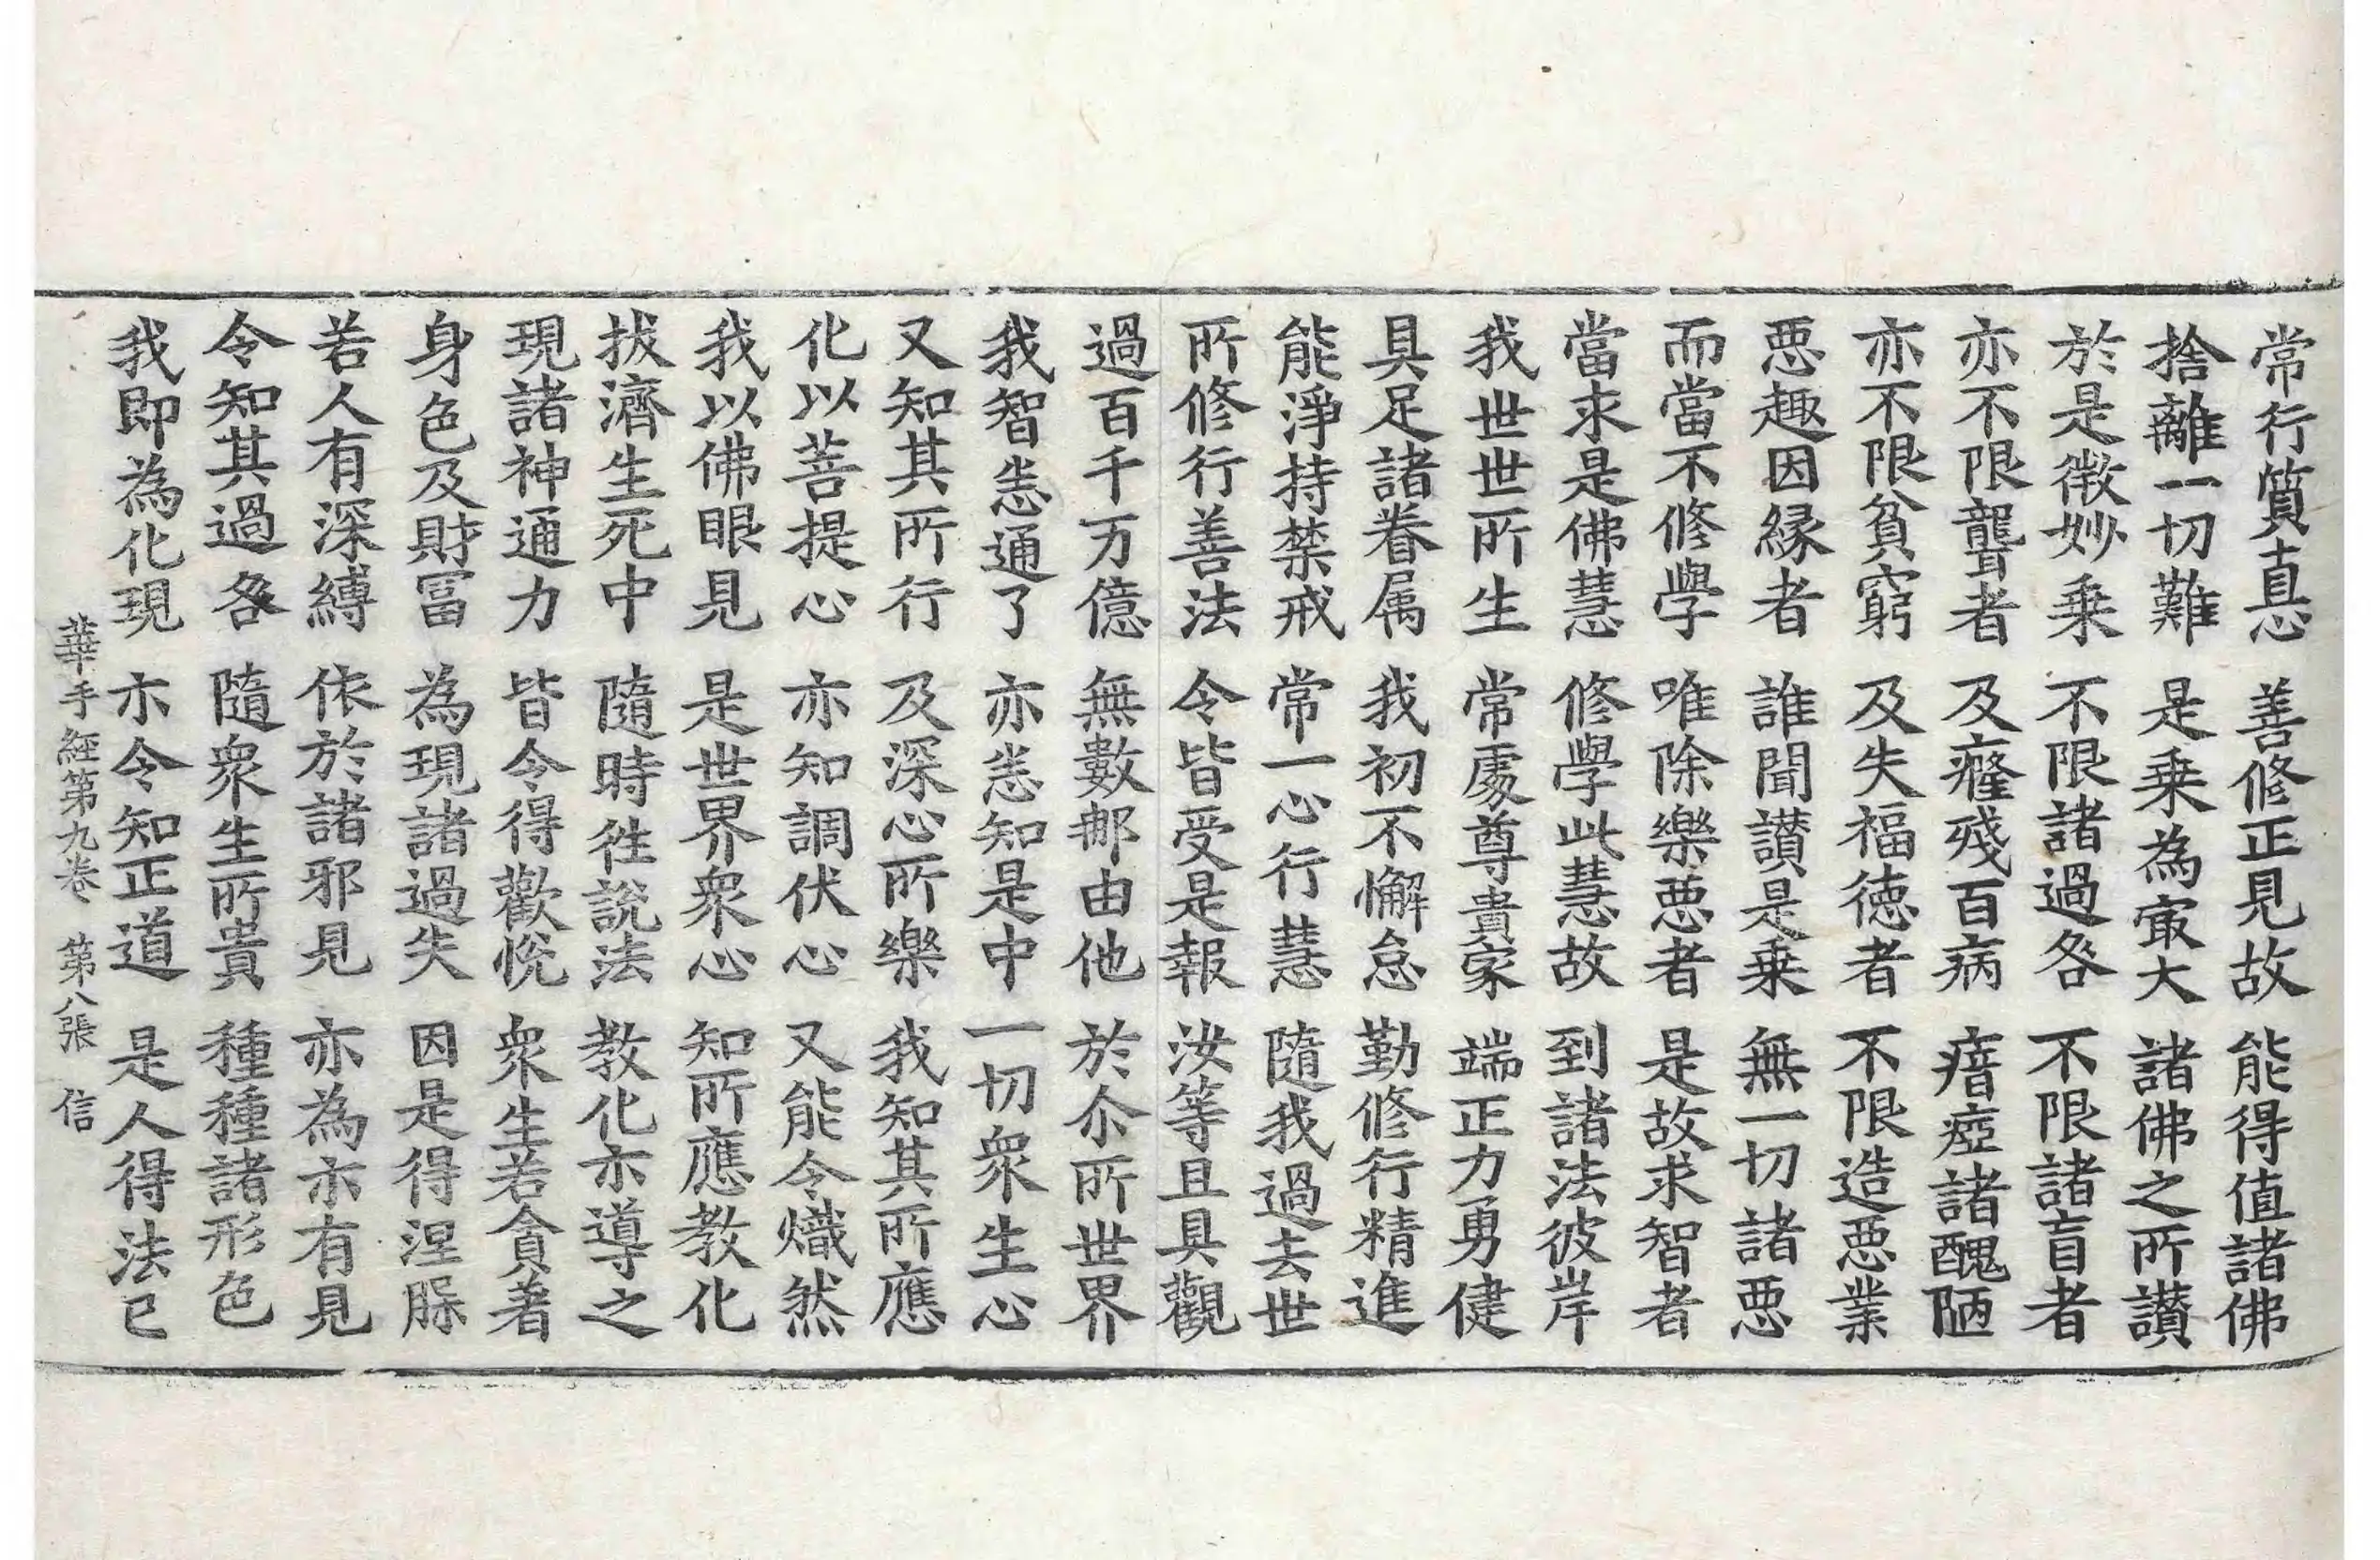 常行質直𢙣 善修正見故 能得值諸佛
捨離一切難 是乗為㝡大 諸佛之所讃
於是微妙乗 不限諸過咎 不限諸盲者
亦不限聾者 及癃殘百病 瘖瘂諸醜陋
亦不限貧窮 及失福徳者 不限造惡業
惡趣因縁者 誰聞讃是乗 無一切諸惡
而當不修學 唯除樂惡者 是故求智者
當求是佛慧 修學此慧故 到諸法彼岸
我世世所生 常處尊貴家 端正力勇健
具足諸眷属 我初不懈怠 勤修行精進
能淨持禁戒 常一心行慧 隨我過去世
所修行善法 令皆受是報 汝等且具觀
過百千万億 無數那由他 於尒所世界
我智悉通了 亦悉知是中 一切衆生心
又知其所行 及深心所樂 我知其所應
化以菩提心 亦知調伏心 又能令熾然
我以佛眼見 是世界衆心 知所應教化
拔濟生死中 隨時徃說法 教化亦導之
現諸神通力 皆令得歡恱 衆生若貪著
身色及財冨 為現諸過失 因是得涅槃
若人有深縛 依於諸邪見 亦為亦有見
令知其過咎 隨衆生所貴 種種諸形色
我即為化現 亦令知正道 是人得法已
華手經第九卷 第八張 信